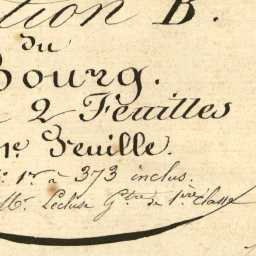 ction B.
du
Bourg.
2 Feuilles
1re Feuille.
1r. à 373 inclus.
Mr. Lecluse Gtre de 1ère classe